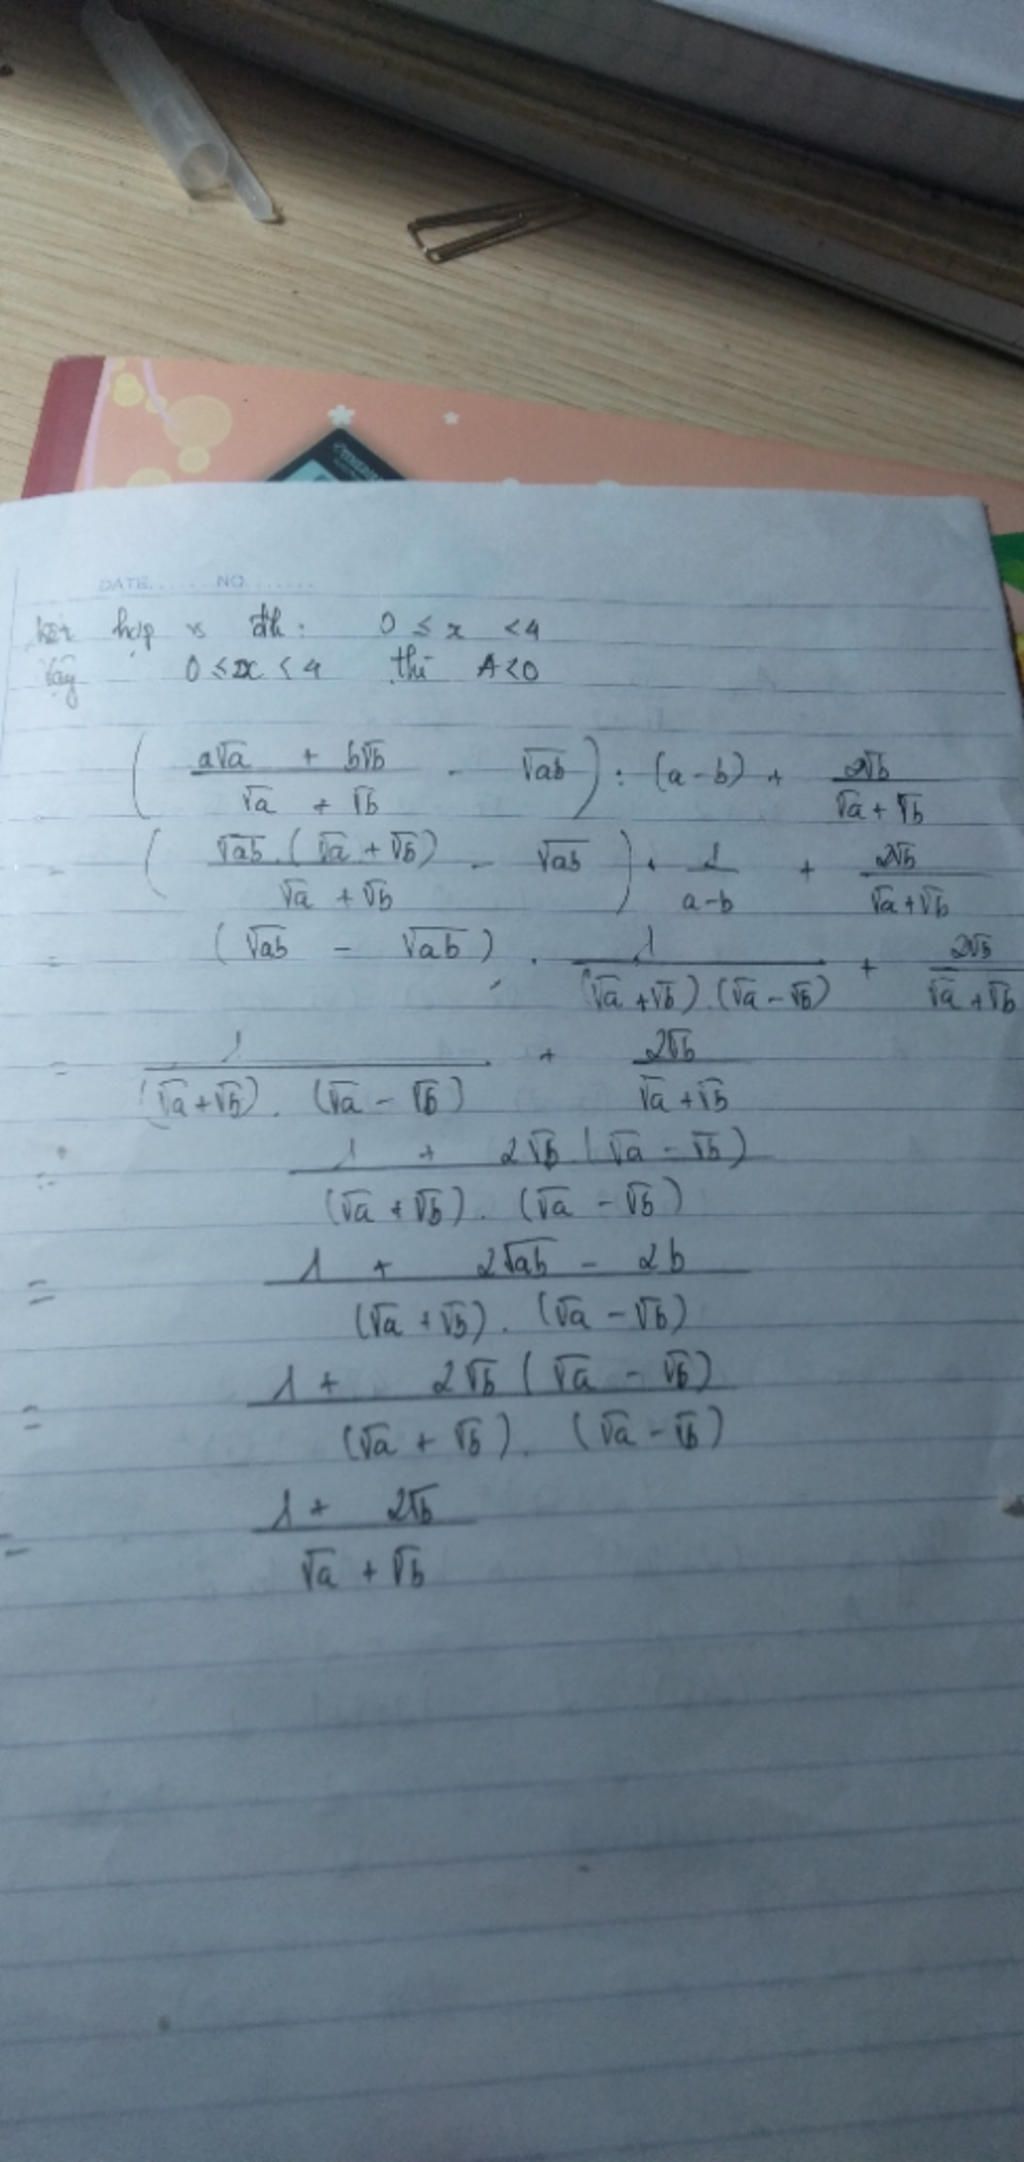 DATE...... NO.......
Kết hợp vs đk: 0 ≤ x < 4
Vậy 0 ≤ x < 4 thì A < 0
( (a√a + b√b)/(√a + √b) - √ab ) : (a - b) + 2√b/(√a + √b)
= ( √ab.(√a + √b)/(√a + √b) - √ab ) . 1/(a - b) + 2√b/(√a + √b)
= (√ab - √ab) . 1/((√a + √b).(√a - √b)) + 2√b/(√a + √b)
= 1/((√a + √b).(√a - √b)) + 2√b/(√a + √b)
= (1 + 2√b.(√a - √b))/((√a + √b).(√a - √b))
= (1 + 2√ab - 2b)/((√a + √b).(√a - √b))
= (1 + 2√b(√a - √b))/((√a + √b).(√a - √b))
= (1 + 2√b)/(√a + √b)